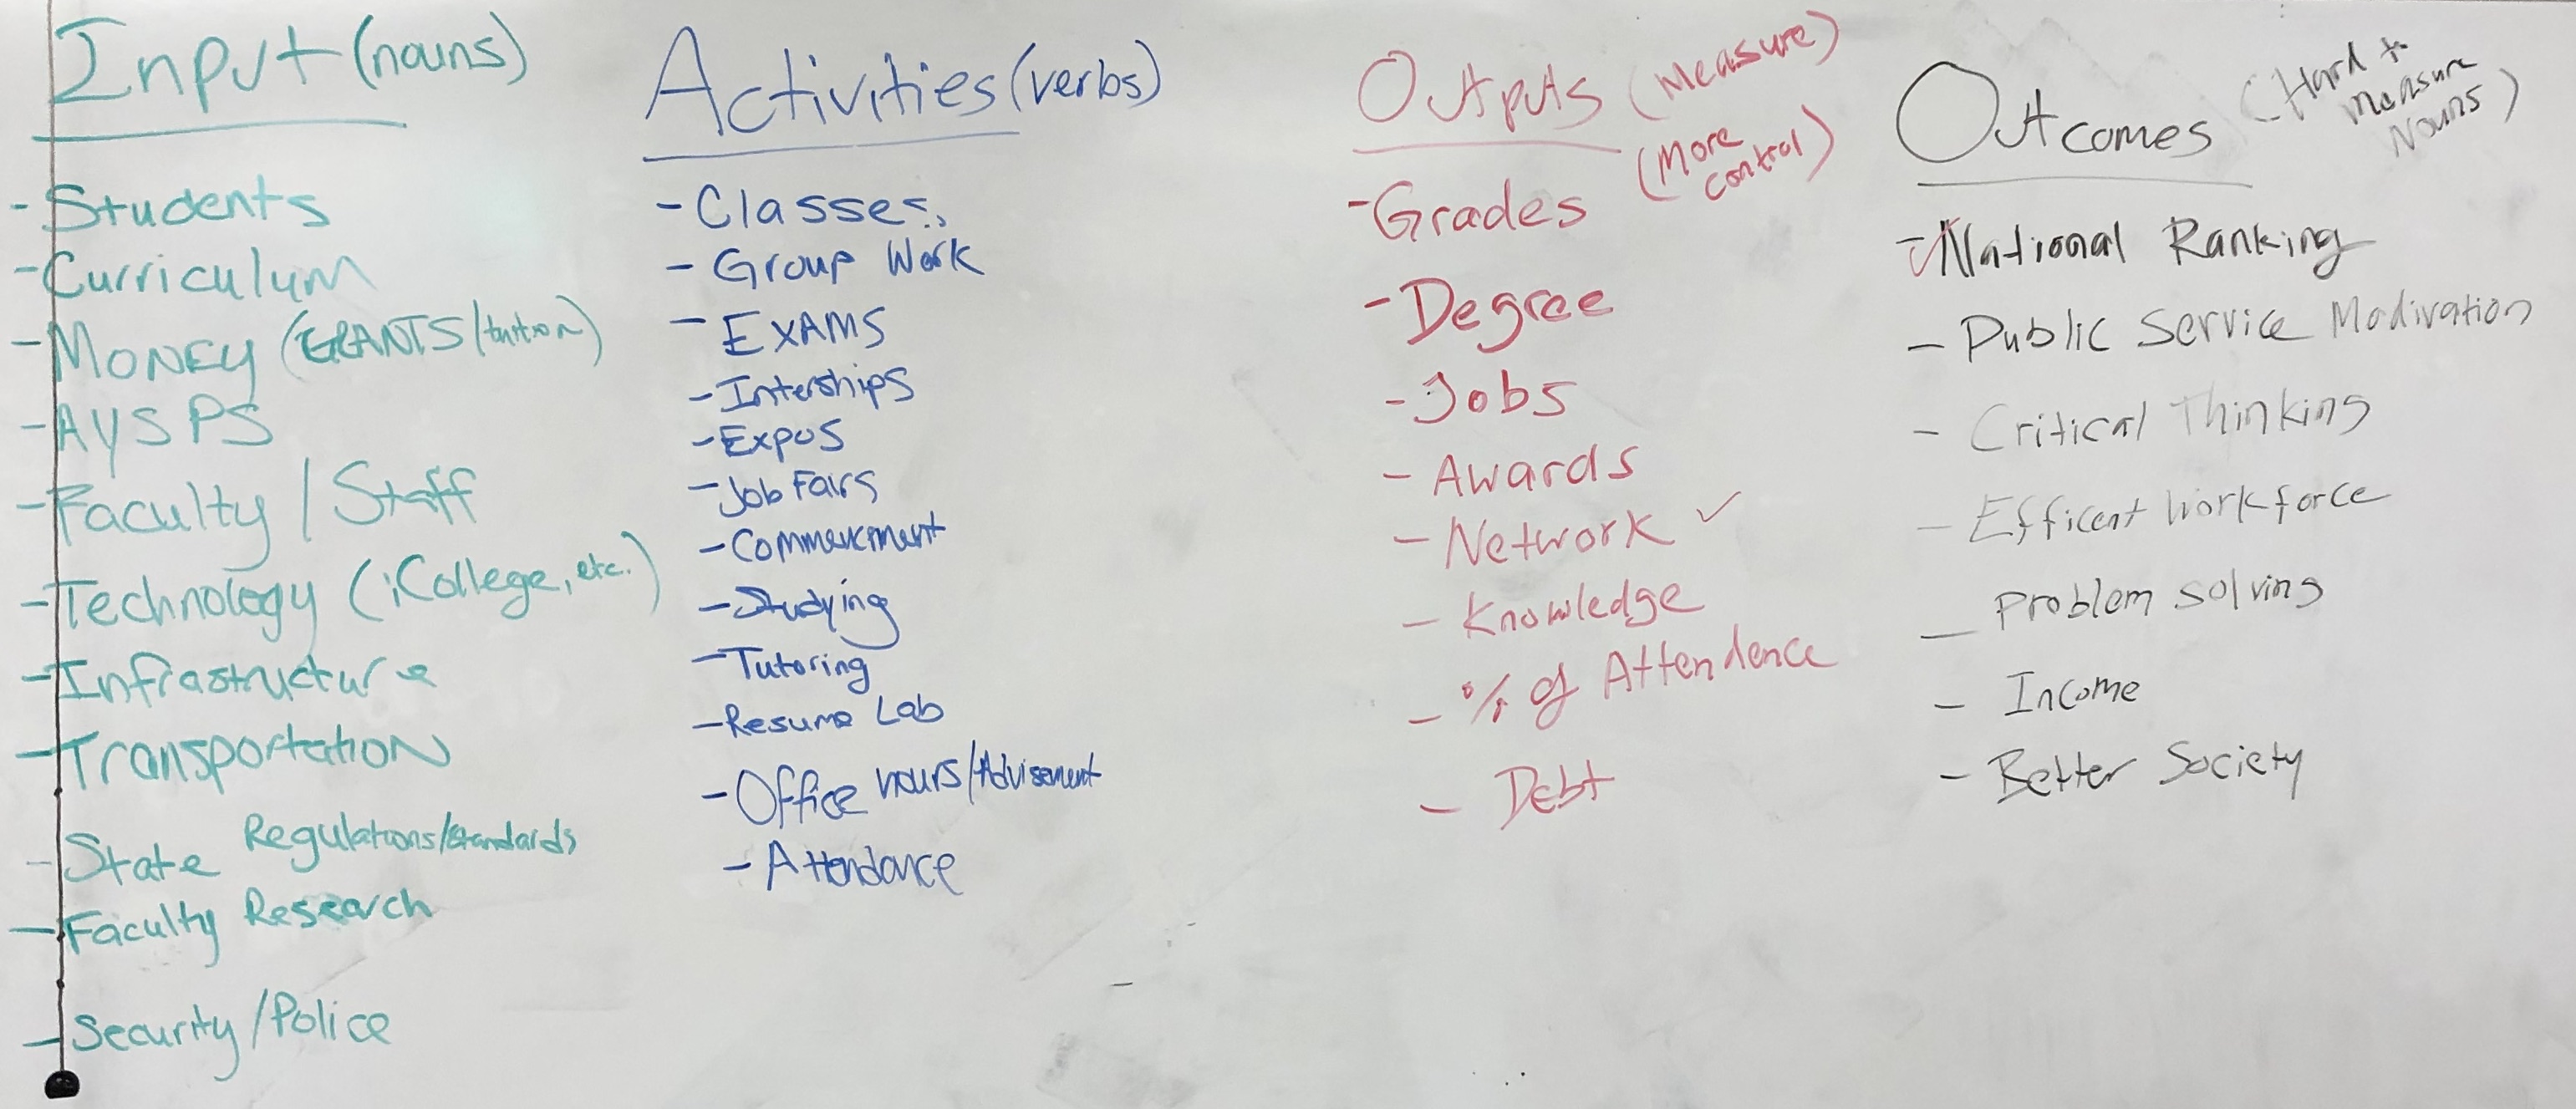 Input (nouns)
- Students
- Curriculum
- Money (GRANTS/tuition)
- AYSPS
- Faculty / Staff
- Technology (iCollege, etc.)
- Infrastructure
- Transportation
- State Regulations/standards
- Faculty Research
- Security/Police
Activities (verbs)
- Classes,
- Group Work
- EXAMS
- Interships
- Expos
- Job Fairs
- Commencment
- Studying
- Tutoring
- Resume Lab
- Office hours/Advisement
- Attendance
Outputs (Measure)
(More
control)
- Grades
- Degree
- Jobs
- Awards
- Network ✓
- Knowledge
- % of Attendence
- Debt
Outcomes (Hard to
measure
Nouns)
- National Ranking
- Public Service Modivation
- Critical Thinking
- Efficent workforce
- Problem solving
- Income
- Better Society